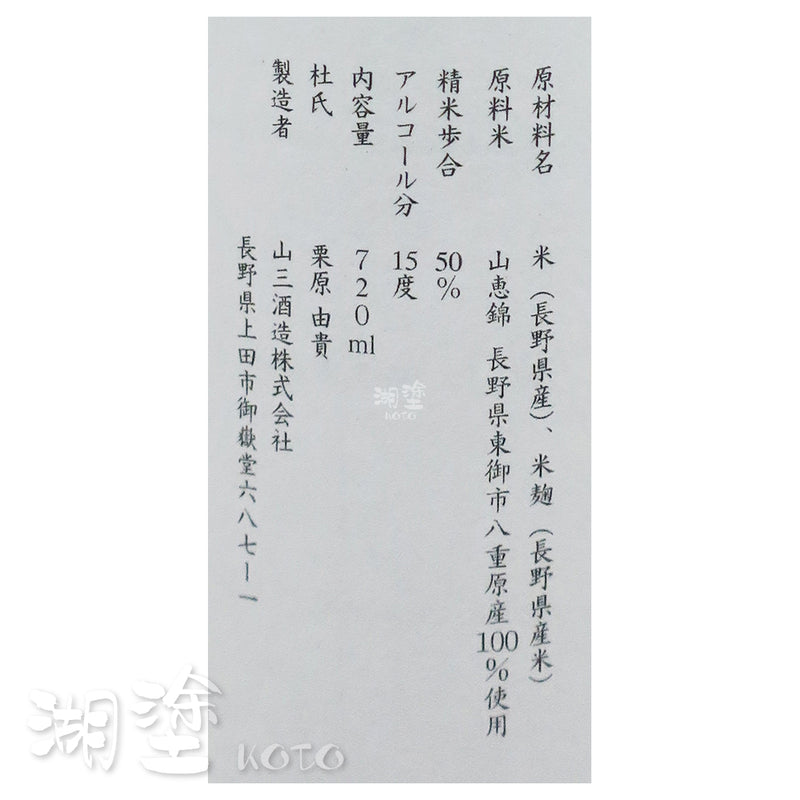 原材料名 米（長野県産）、米麹（長野県産米）
原料米 山恵錦 長野県東御市八重原産100%使用
精米歩合 50%
アルコール分 15度
内容量 720ml
杜氏 栗原由貴
製造者 山三酒造株式会社
長野県上田市御嶽堂六八七ー一
湖塗 KOTO
湖塗 KOTO